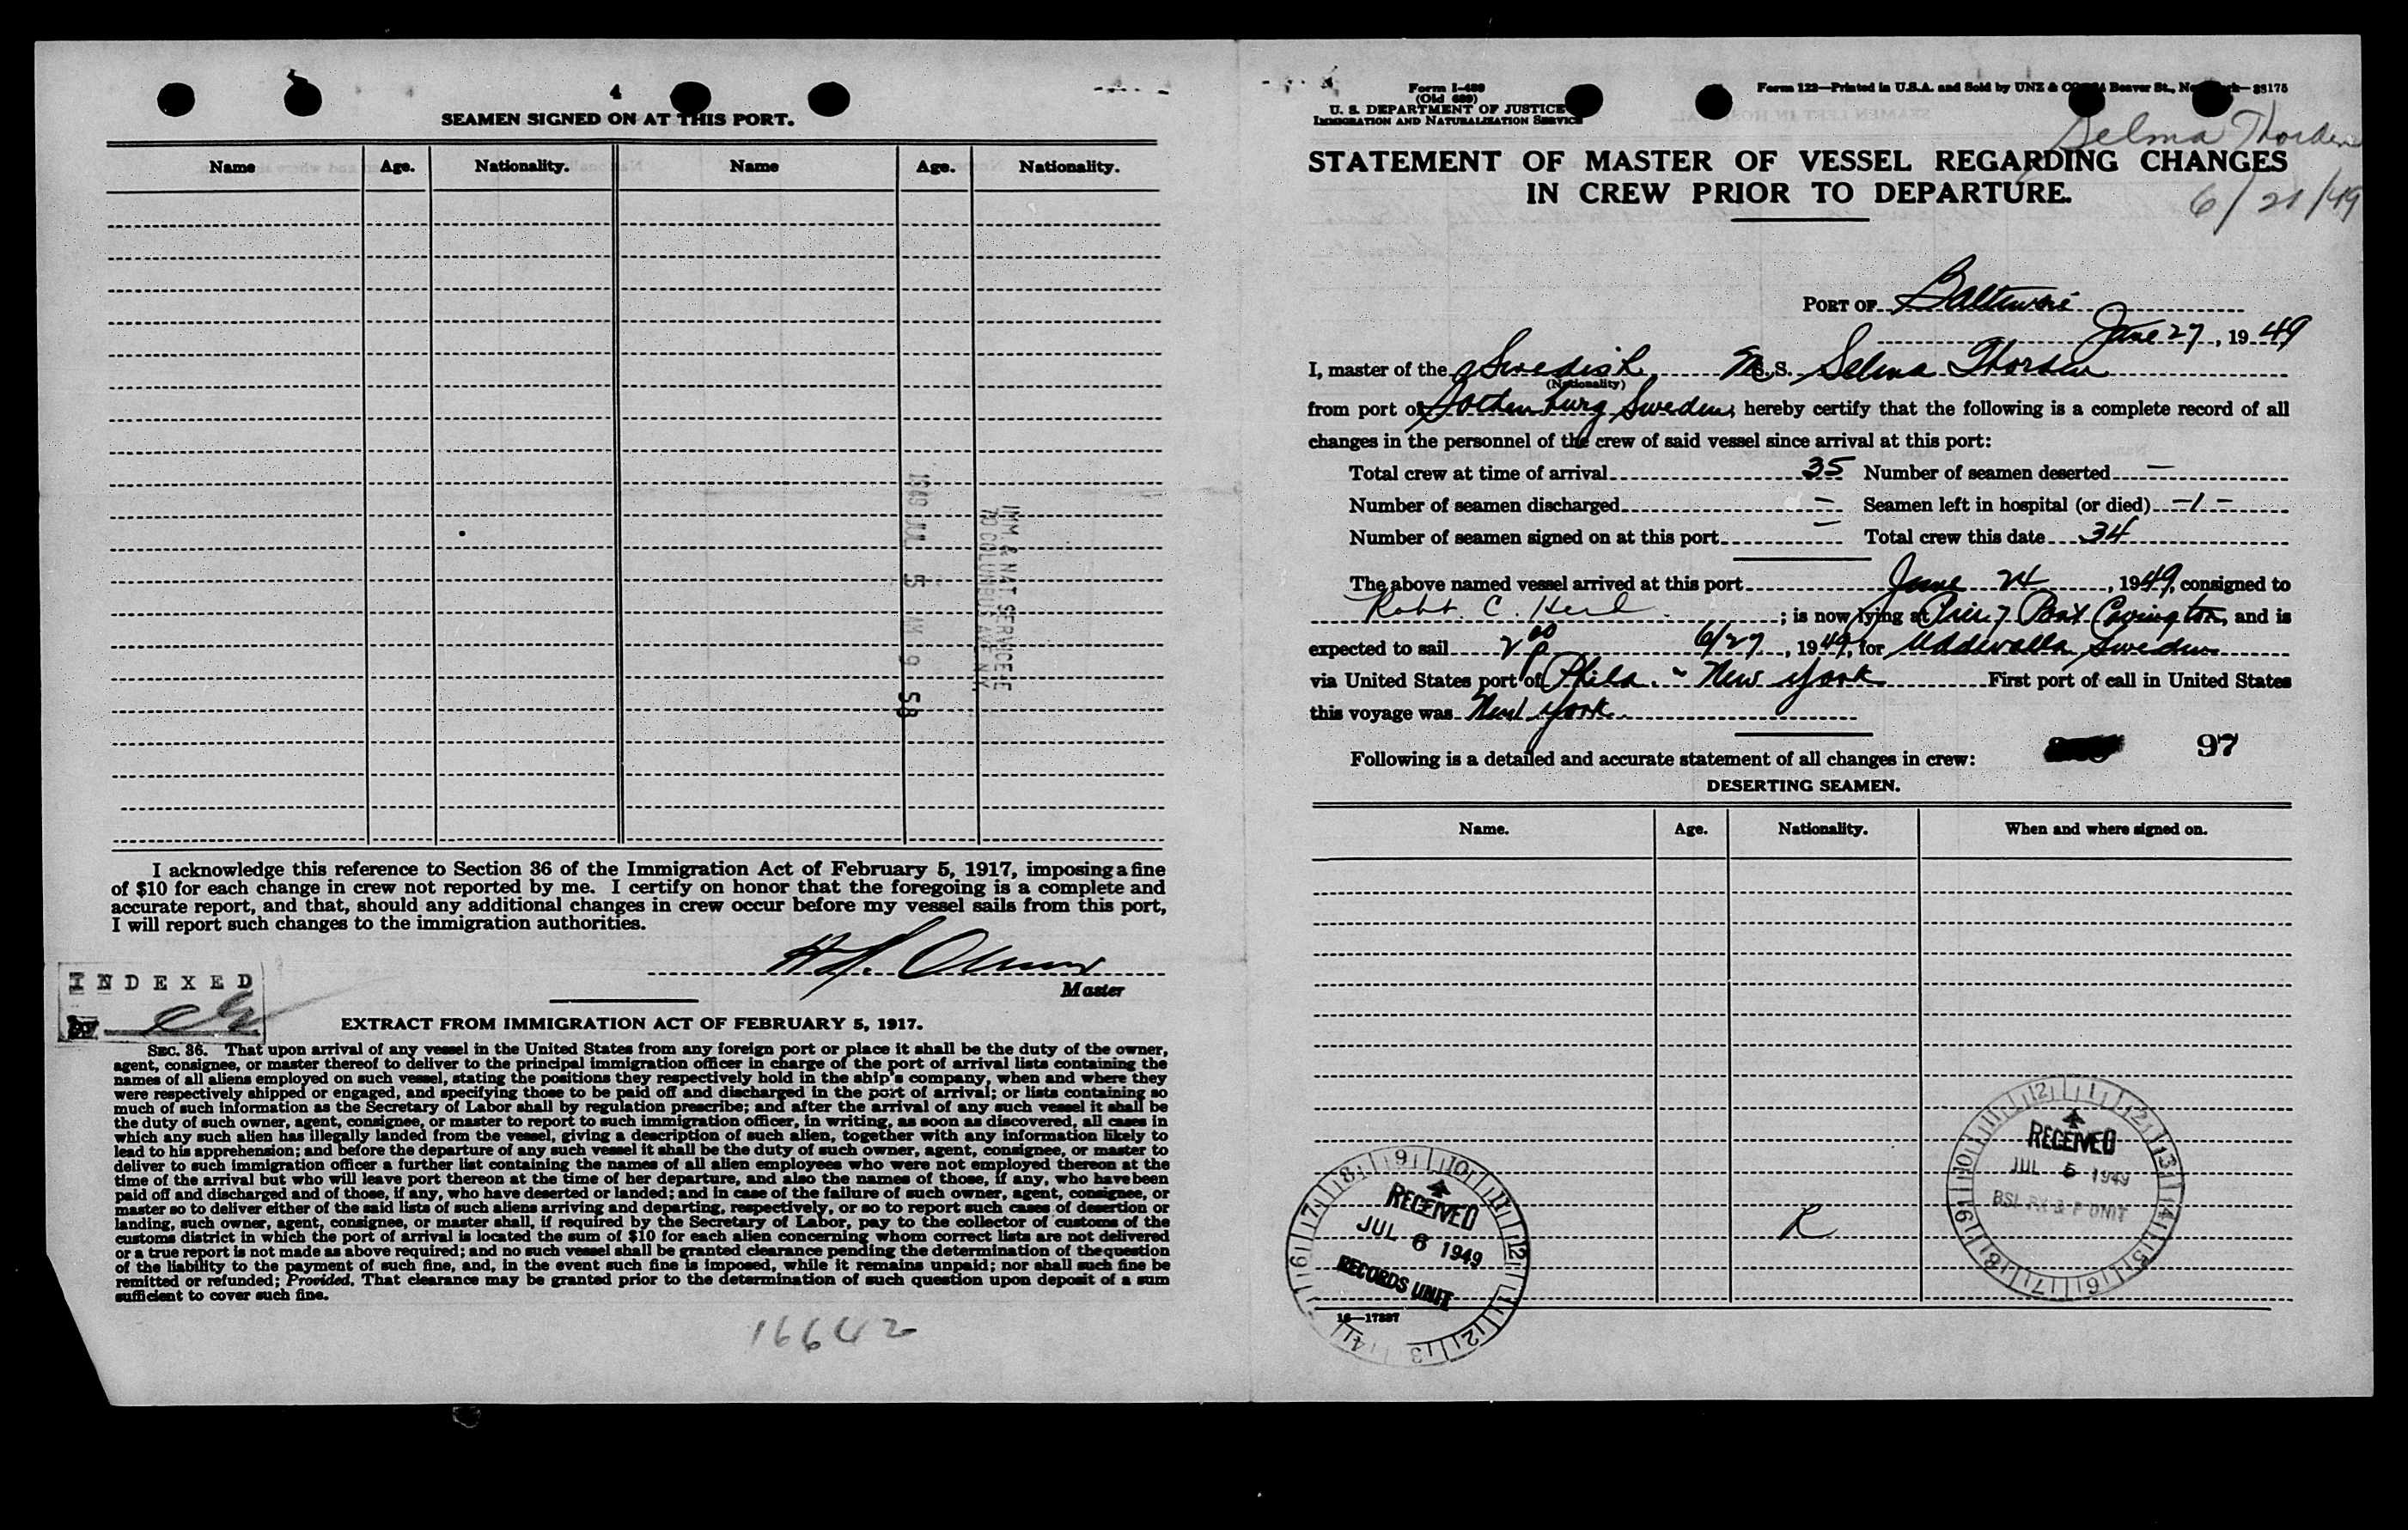 4
SEAMEN SIGNED ON AT THIS PORT.
Name Age. Nationality. Name Age. Nationality.
1949 JUL 5 AM 9 58
IMM. & NAT. SERVICE
70 COLUMBUS AVE N.Y.
I acknowledge this reference to Section 36 of the Immigration Act of February 5, 1917, imposing a fine
of $10 for each change in crew not reported by me. I certify on honor that the foregoing is a complete and
accurate report, and that, should any additional changes in crew occur before my vessel sails from this port,
I will report such changes to the immigration authorities.
Master
INDEXED
BY
EXTRACT FROM IMMIGRATION ACT OF FEBRUARY 5, 1917.
SEC. 36. That upon arrival of any vessel in the United States from any foreign port or place it shall be the duty of the owner,
agent, consignee, or master thereof to deliver to the principal immigration officer in charge of the port of arrival lists containing the
names of all aliens employed on such vessel, stating the positions they respectively hold in the ship's company, when and where they
were respectively shipped or engaged, and specifying those to be paid off and discharged in the port of arrival; or lists containing so
much of such information as the Secretary of Labor shall by regulation prescribe; and after the arrival of any such vessel it shall be
the duty of such owner, agent, consignee, or master to report to such immigration officer, in writing, as soon as discovered, all cases in
which any such alien has illegally landed from the vessel, giving a description of such alien, together with any information likely to
lead to his apprehension; and before the departure of any such vessel it shall be the duty of such owner, agent, consignee, or master to
deliver to such immigration officer a further list containing the names of all alien employees who were not employed thereon at the
time of the arrival but who will leave port thereon at the time of her departure, and also the names of those, if any, who have been
paid off and discharged and of those, if any, who have deserted or landed; and in case of the failure of such owner, agent, consignee, or
master so to deliver either of the said lists of such aliens arriving and departing, respectively, or so to report such cases of desertion or
landing, such owner, agent, consignee, or master shall, if required by the Secretary of Labor, pay to the collector of customs of the
customs district in which the port of arrival is located the sum of $10 for each alien concerning whom correct lists are not delivered
or a true report is not made as above required; and no such vessel shall be granted clearance pending the determination of the question
of the liability to the payment of such fine, and, in the event such fine is imposed, while it remains unpaid; nor shall such fine be
remitted or refunded; Provided, That clearance may be granted prior to the determination of such question upon deposit of a sum
sufficient to cover such fine.
16642
Form I-489
(Old 689)
U. S. DEPARTMENT OF JUSTICE
IMMIGRATION AND NATURALIZATION SERVICE
Form 122—Printed in U.S.A. and Sold by UNZ & Beaver St., 38175
Selma Thorden
6/21/49
STATEMENT OF MASTER OF VESSEL REGARDING CHANGES
IN CREW PRIOR TO DEPARTURE.
PORT OF Baltimore
June 27, 1949
I, master of the Swedish M.S. Selma Thorden
(Nationality)
from port of Gothenburg Sweden, hereby certify that the following is a complete record of all
changes in the personnel of the crew of said vessel since arrival at this port:
Total crew at time of arrival 35 Number of seamen deserted —
Number of seamen discharged — Seamen left in hospital (or died) -1-
Number of seamen signed on at this port — Total crew this date 34
The above named vessel arrived at this port June 24, 1949, consigned to
Robt. C. Herd; is now lying at Pier 7 Port Covington, and is
expected to sail 2 00 p 6/27, 1949, for Uddevalla Sweden
via United States port of Phila. - New York First port of call in United States
this voyage was New York
Following is a detailed and accurate statement of all changes in crew: 97
DESERTING SEAMEN.
Name. Age. Nationality. When and where signed on.
RECEIVED
JUL 5 1949
R
RECEIVED
JUL 6 1949
RECORDS UNIT
16—17887